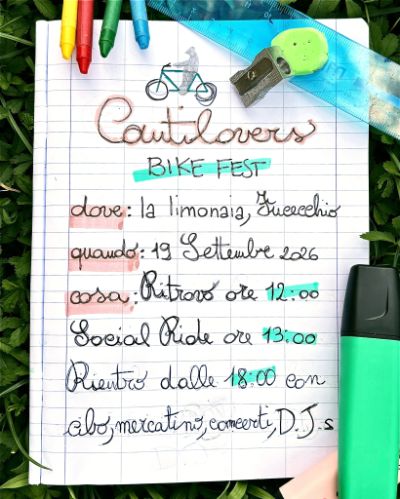 Cautilovers
BIKE FEST
dove: la limonaia, Fucecchio
quando: 19 Settembre 2026
cosa: Ritrovo ore 12:00
Social Ride ore 13:00
Rientro dalle 18:00 con
cibo, mercatino, concerti, D.J.s